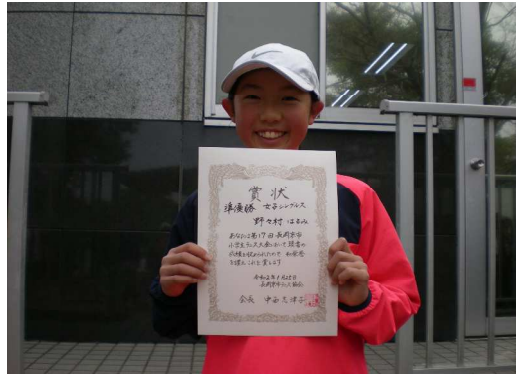 賞状
準優勝 女子シングルス
野々村 はるみ
あなたは第17回長岡京市
小学生テニス大会において頭書の
成績を収められたので その栄誉
を讃え これを賞します
長岡京市テニス協会
会長 中西志津子